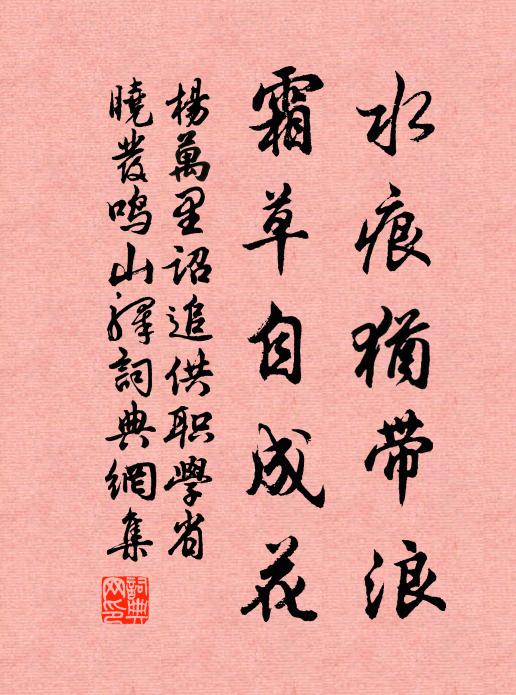 水痕猶带浪
霜草自成花
楊萬里詔追供职學省
曉发鸣山驛詞典網集
詞典网印